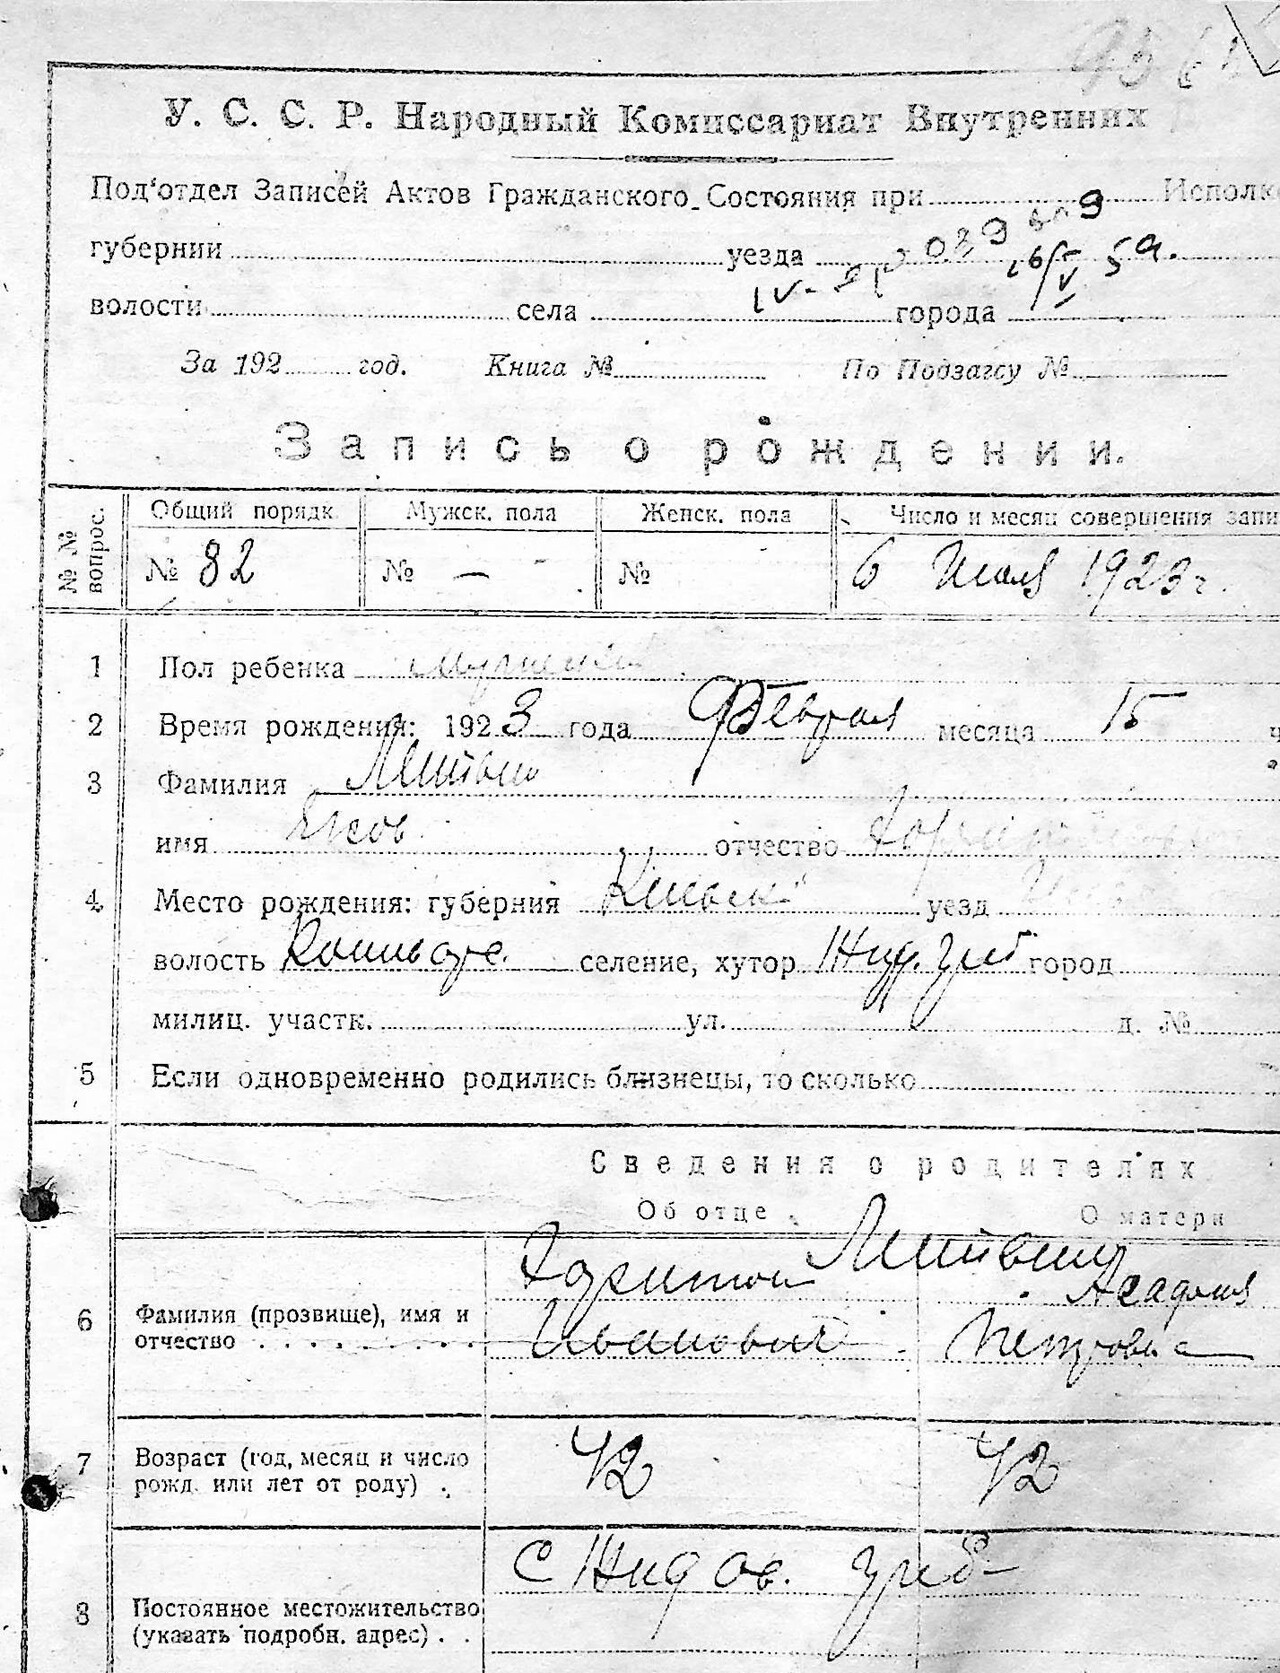 У. С. С. Р. Народный Комиссариат Внутренних
Под'отдел Записей Актов Гражданского Состояния при Исполк
губернии уезда
волости села города
За 192 год. Книга № По Подзагсу №
Запись о рождении.
№ № вопрос. Общий порядк. Мужск. пола Женск. пола Число и месяц совершения запи
№ 82 № — № 6 Июля 1923 г.
1 Пол ребенка
2 Время рождения: 1923 года Февраля месяца 15 ч
3 Фамилия Литвин
имя Яков отчество
4 Место рождения: губерния Киевск уезд
волость селение, хутор Жид. Греб город
милиц. участк. ул. д. №
5 Если одновременно родились близнецы, то сколько
Сведения о родителях
Об отце О матери
Литвин
6 Фамилия (прозвище), имя и отчество Харитон Иванович Петровна
7 Возраст (год, месяц и число рожд. или лет от роду) 42 42
8 Постоянное местожительство (указать подробн. адрес) с Жидов. Греб